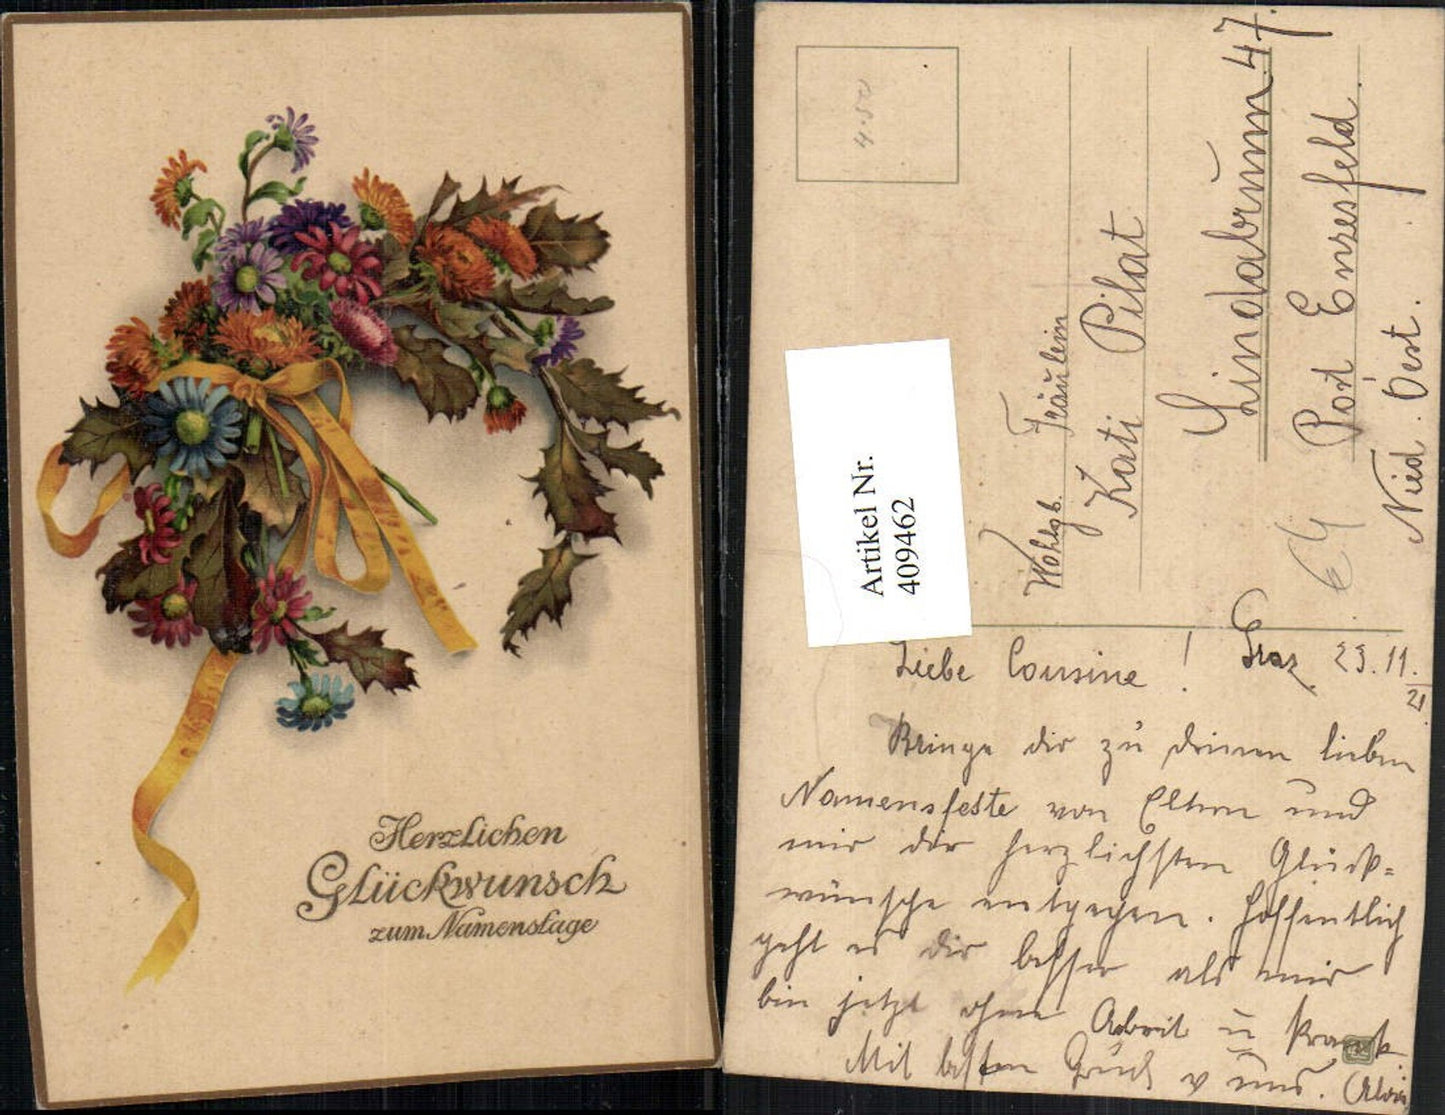 Herzlichen
Glückwunsch
zum Namenstage
4.50
Artikel Nr.
409462
Wohlgb. Fräulein
Kati Pilat
Lindabrunn 47.
Post Enzesfeld
Nied. Öest.
Liebe Cousine! Graz, 23.11.
21
Bringe dir zu deinem lieben
Namensfeste von Eltern und
mir die herzlichsten Glück=
wünsche entgegen. Hoffentlich
geht es dir besser als mir
bin jetzt ohne Arbeit u krank
Mit besten Gruß v uns.